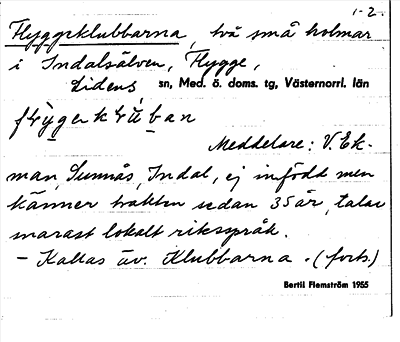 1-2.
Flyggeklubbarna, två små holmar
i Indalsälven, Flygge,
Lidens sn, Med. ö. doms. tg, Västernorrl. län
Meddelare: V. Ek-
man, Sunnås, Indal, ej infödd men
känner trakten sedan 35 år, talar
snarast lokalt riksspråk.
- Kallas äv. Klubbarna. (forts.)
Bertil Flemström 1955